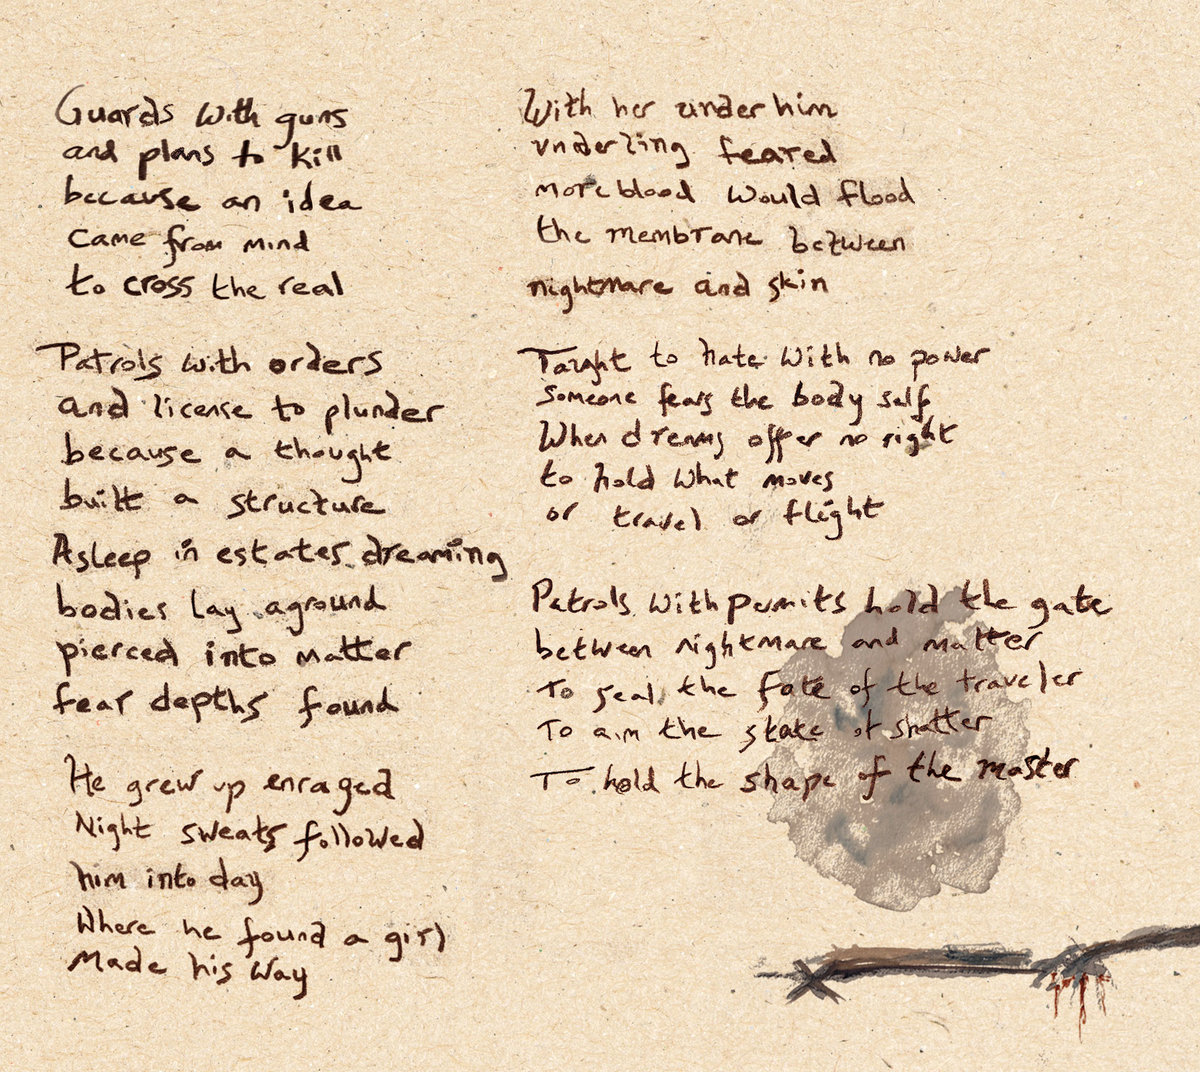 Guards with guns
and plans to kill
because an idea
came from mind
to cross the real
Patrols with orders
and license to plunder
because a thought
built a structure
Asleep in estates dreaming
bodies lay aground
pierced into matter
fear depths found
He grew up enraged
Night sweats followed
him into day
Where he found a girl
Made his way
With her under him
underling feared
more blood would flood
the membrane between
nightmare and skin
Taught to hate with no power
Someone fears the body self
When dreams offer no right
to hold what moves
or travel or flight
Patrols with permits hold the gate
between nightmare and matter
To seal the fate of the traveler
To aim the state of shatter
To hold the shape of the master